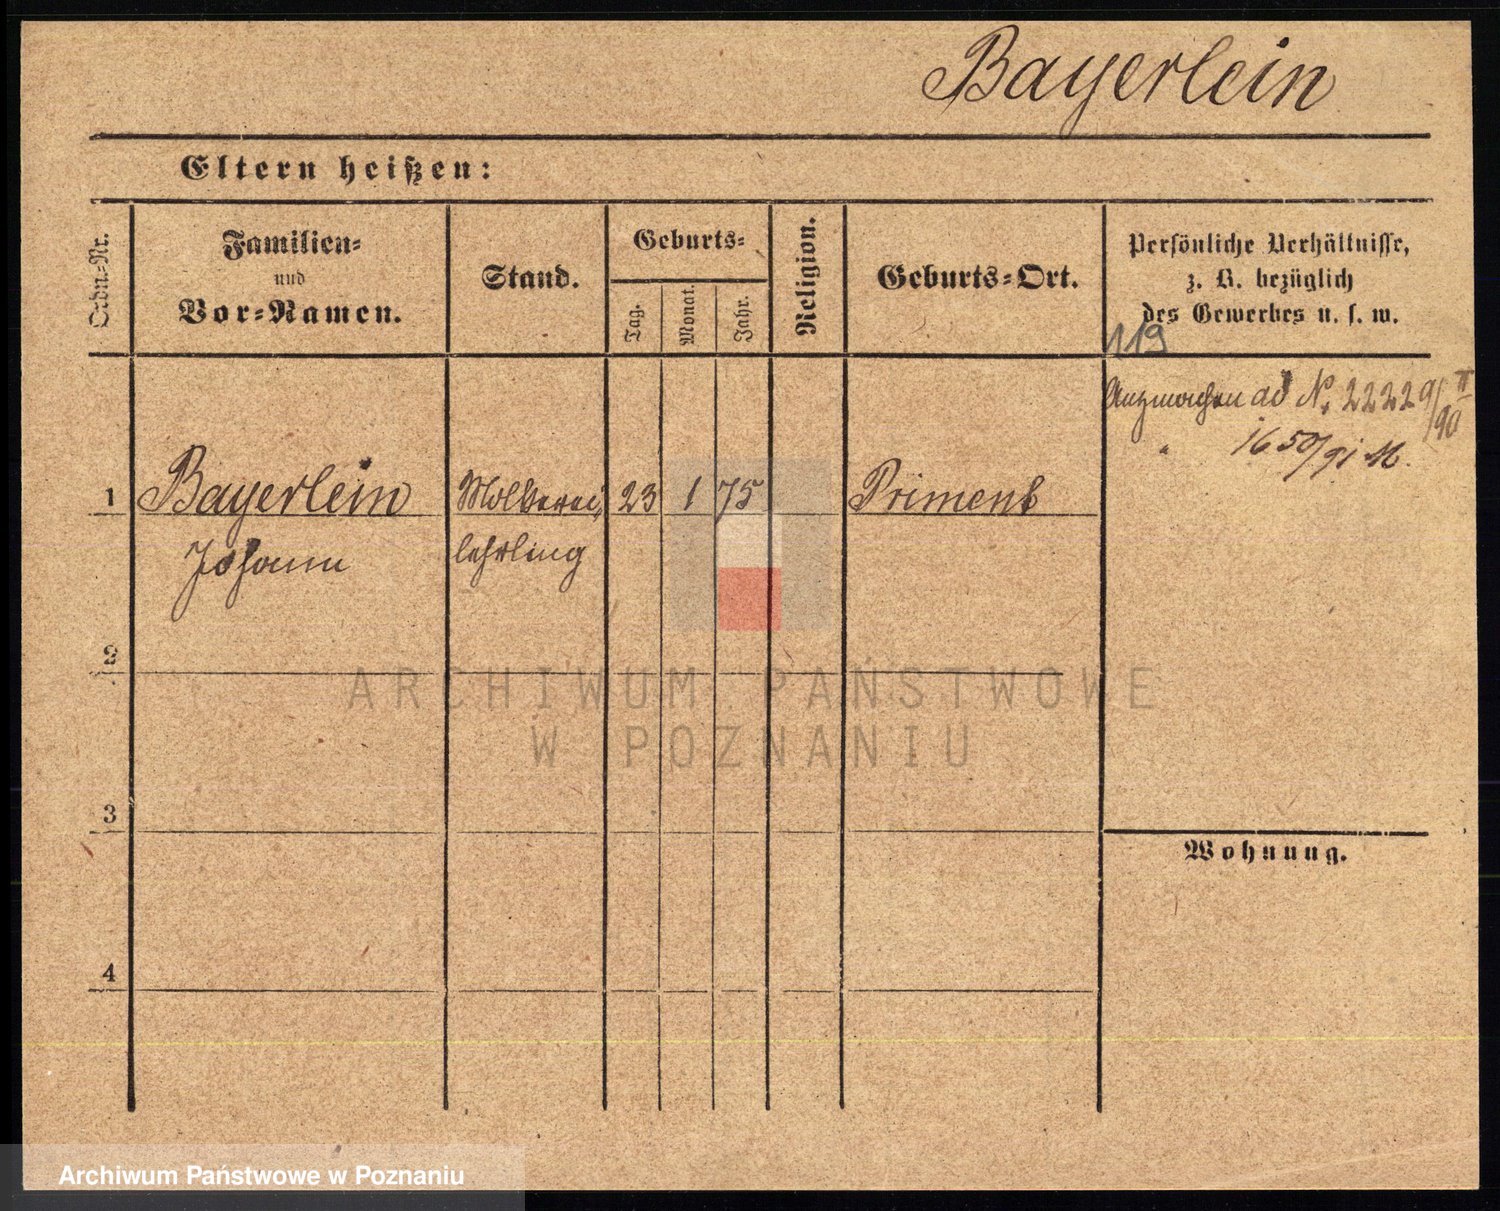 Bayerlein
Eltern heißen:
Ordn.-Nr.
Familien-
und
Vor-Namen.
Stand.
Geburts-
Tag.
Monat.
Jahr.
Religion.
Geburts-Ort.
Persönliche Verhältnisse,
z. B. bezüglich
des Gewerbes u. s. w.
119
ad N. 22229/90 II
1650/91 M.
1 Bayerlein Molkerei- 23 1 75 Priment
Johann lehrling
2
ARCHIWUM PAŃSTWOWE
W POZNANIU
3
Wohnung.
4
Archiwum Państwowe w Poznaniu